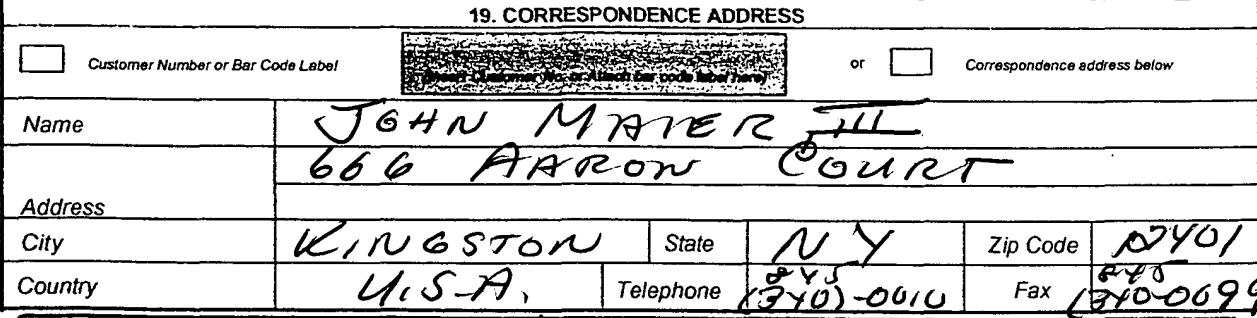 19. CORRESPONDENCE ADDRESS
Customer Number or Bar Code Label (Insert Customer No. or Attach bar code label here) or Correspondence address below
Name JOHN MAIER III
666 AARON COURT
Address
City KINGSTON State NY Zip Code 12401
Country U.S.A. Telephone 845 (340)-0010 Fax 845 (340-069